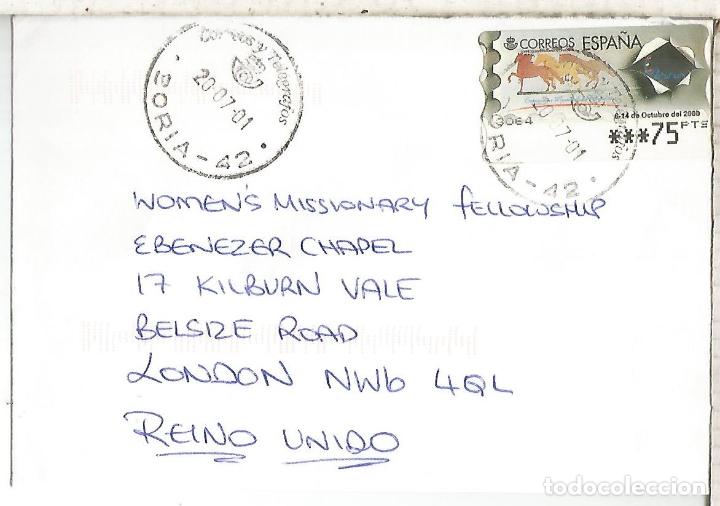 Correos y Telégrafos
20-07-01
SORIA-42
CORREOS ESPAÑA
6-14 de Octubre del 2000
3064
***75 PTS
20-07-01
ORIA-42
WOMEN'S MISSIONARY FELLOWSHIP
EBENEZER CHAPEL
17 KILBURN VALE
BELSIZE ROAD
LONDON NW6 4QL
REINO UNIDO
todocoleccion.net